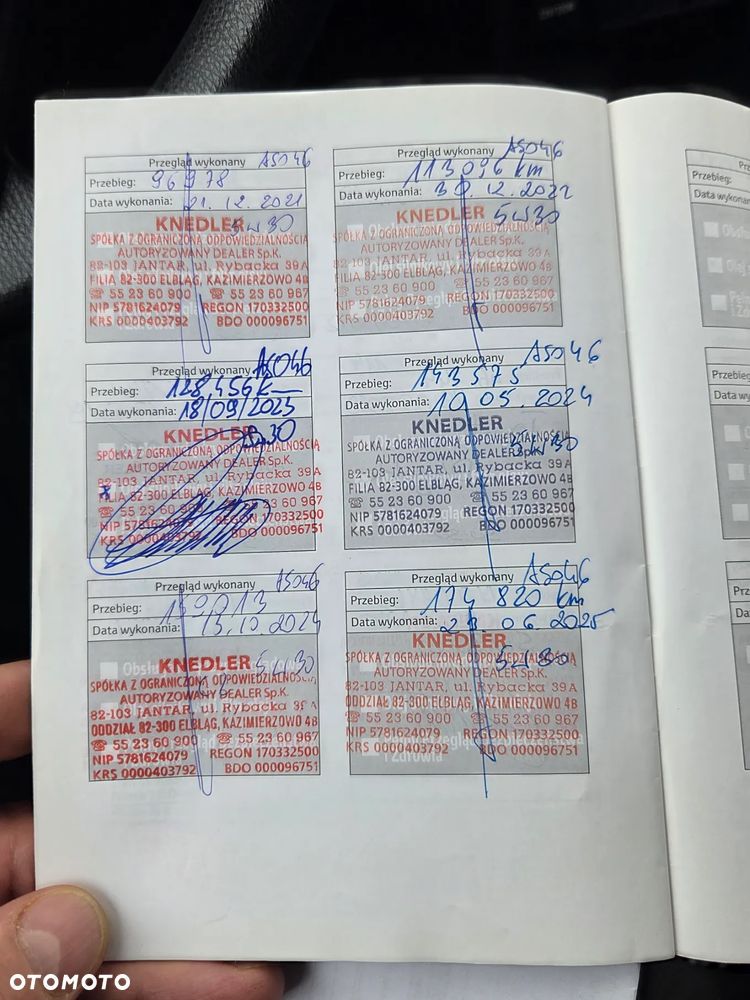 Przegląd wykonany ASO46
Przebieg: 96978
Data wykonania: 21.12.2021
KNEDLER 5W30
SPÓŁKA Z OGRANICZONĄ ODPOWIEDZIALNOŚCIĄ
AUTORYZOWANY DEALER Sp.K.
82-103 JANTAR, ul. Rybacka 39A
FILIA 82-300 ELBLĄG, KAZIMIERZOWO 4B
☎ 55 23 60 900 ☎ 55 23 60 967
NIP 5781624079 REGON 170332500
KRS 0000403792 BDO 000096751
Przegląd wykonany ASO46
Przebieg: 113096 km
Data wykonania: 30.12.2022
KNEDLER 5W30
SPÓŁKA Z OGRANICZONĄ ODPOWIEDZIALNOŚCIĄ
AUTORYZOWANY DEALER Sp.K.
82-103 JANTAR, ul. Rybacka 39A
FILIA 82-300 ELBLĄG, KAZIMIERZOWO 4B
☎ 55 23 60 900 ☎ 55 23 60 967
NIP 5781624079 REGON 170332500
KRS 0000403792 BDO 000096751
Przegląd wykonany ASO46
Przebieg: 128,456km
Data wykonania: 18/09/2023
KNEDLER 5W30
SPÓŁKA Z OGRANICZONĄ ODPOWIEDZIALNOŚCIĄ
AUTORYZOWANY DEALER Sp.K.
82-103 JANTAR, ul. Rybacka 39A
FILIA 82-300 ELBLĄG, KAZIMIERZOWO 4B
☎ 55 23 60 900 ☎ 55 23 60 967
NIP 5781624079 REGON 170332500
KRS 0000403792 BDO 000096751
Przegląd wykonany ASO46
Przebieg: 143575
Data wykonania: 10.05.2024
KNEDLER
SPÓŁKA Z OGRANICZONĄ ODPOWIEDZIALNOŚCIĄ
AUTORYZOWANY DEALER Sp.K. 5W30
82-103 JANTAR, ul. Rybacka 39A
FILIA 82-300 ELBLĄG, KAZIMIERZOWO 4B
☎ 55 23 60 900 ☎ 55 23 60 967
NIP 5781624079 REGON 170332500
KRS 0000403792 BDO 000096751
Przegląd wykonany ASO46
Przebieg:
Data wykonania: 15.10.2024
KNEDLER 5W30
SPÓŁKA Z OGRANICZONĄ ODPOWIEDZIALNOŚCIĄ
AUTORYZOWANY DEALER Sp.K.
82-103 JANTAR, ul. Rybacka 39A
ODDZIAŁ 82-300 ELBLĄG, KAZIMIERZOWO 4B
☎ 55 23 60 900 ☎ 55 23 60 967
NIP 5781624079 REGON 170332500
KRS 0000403792 BDO 000096751
Przegląd wykonany ASO46
Przebieg: 174 820 km
Data wykonania: 06 2025
KNEDLER
SPÓŁKA Z OGRANICZONĄ ODPOWIEDZIALNOŚCIĄ
AUTORYZOWANY DEALER Sp.K. 5W30
82-103 JANTAR, ul. Rybacka 39A
ODDZIAŁ 82-300 ELBLĄG, KAZIMIERZOWO 4B
☎ 55 23 60 900 ☎ 55 23 60 967
NIP 5781624079 REGON 170332500
KRS 0000403792 BDO 000096751
i Zdrowia
Przebieg:
Data wykonan
OTOMOTO